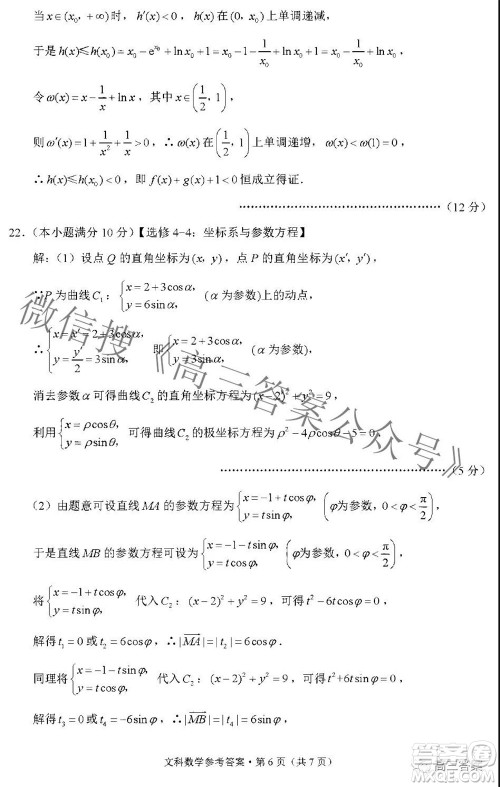 当 x∈(x₀, +∞) 时, h′(x)<0, h(x) 在 (0, x₀) 上单调递减,
于是 h(x)≤h(x₀)=x₀-e^{x₀}+ln x₀+1=x₀-1/x₀+ln x₀+1<x₀-1/x₀+ln x₀,
令 ω(x)=x-1/x+ln x, 其中 x∈(1/2, 1),
则 ω′(x)=1+1/x²+1/x>0, ∴ω(x) 在 (1/2, 1) 上单调递增, ω(x)<ω(1)=0,
∴h(x)≤h(x₀)<0, 即 f(x)+g(x)+1<0 恒成立得证.
(12 分)
22.(本小题满分 10 分)【选修 4-4: 坐标系与参数方程】
解:(1) 设点 Q 的直角坐标为 (x, y), 点 P 的直角坐标为 (x′, y′),
∵P 为曲线 C₁: {x=2+3cosα, y=6sinα (α 为参数) 上的动点,
∴{x=x′=2+3cosα, y=y′/2=3sinα, 即 {x=2+3cosα, y=3sinα (α 为参数),
消去参数 α 可得曲线 C₂ 的直角坐标方程为 (x-2)²+y²=9,
利用 {x=ρcosθ, y=ρsinθ, 可得曲线 C₂ 的极坐标方程为 ρ²-4ρcosθ-5=0.
(5 分)
(2) 由题意可设直线 MA 的参数方程为 {x=-1+tcosφ, y=tsinφ (φ 为参数, 0<φ<π/2),
于是直线 MB 的参数方程可设为 {x=-1-tsinφ, y=tcosφ (φ 为参数, 0<φ<π/2),
将 {x=-1+tcosφ, y=tsinφ, 代入 C₂: (x-2)²+y²=9, 可得 t²-6tcosφ=0,
解得 t₁=0 或 t₂=6cosφ, ∴|MA|=|t₂|=6cosφ.
同理将 {x=-1-tsinφ, y=tcosφ, 代入 C₂: (x-2)²+y²=9, 可得 t²+6tsinφ=0,
解得 t₃=0 或 t₄=-6sinφ, ∴|MB|=|t₄|=6sinφ,
文科数学参考答案·第 6 页(共 7 页)
微信搜《高三答案公众号》
高三答案